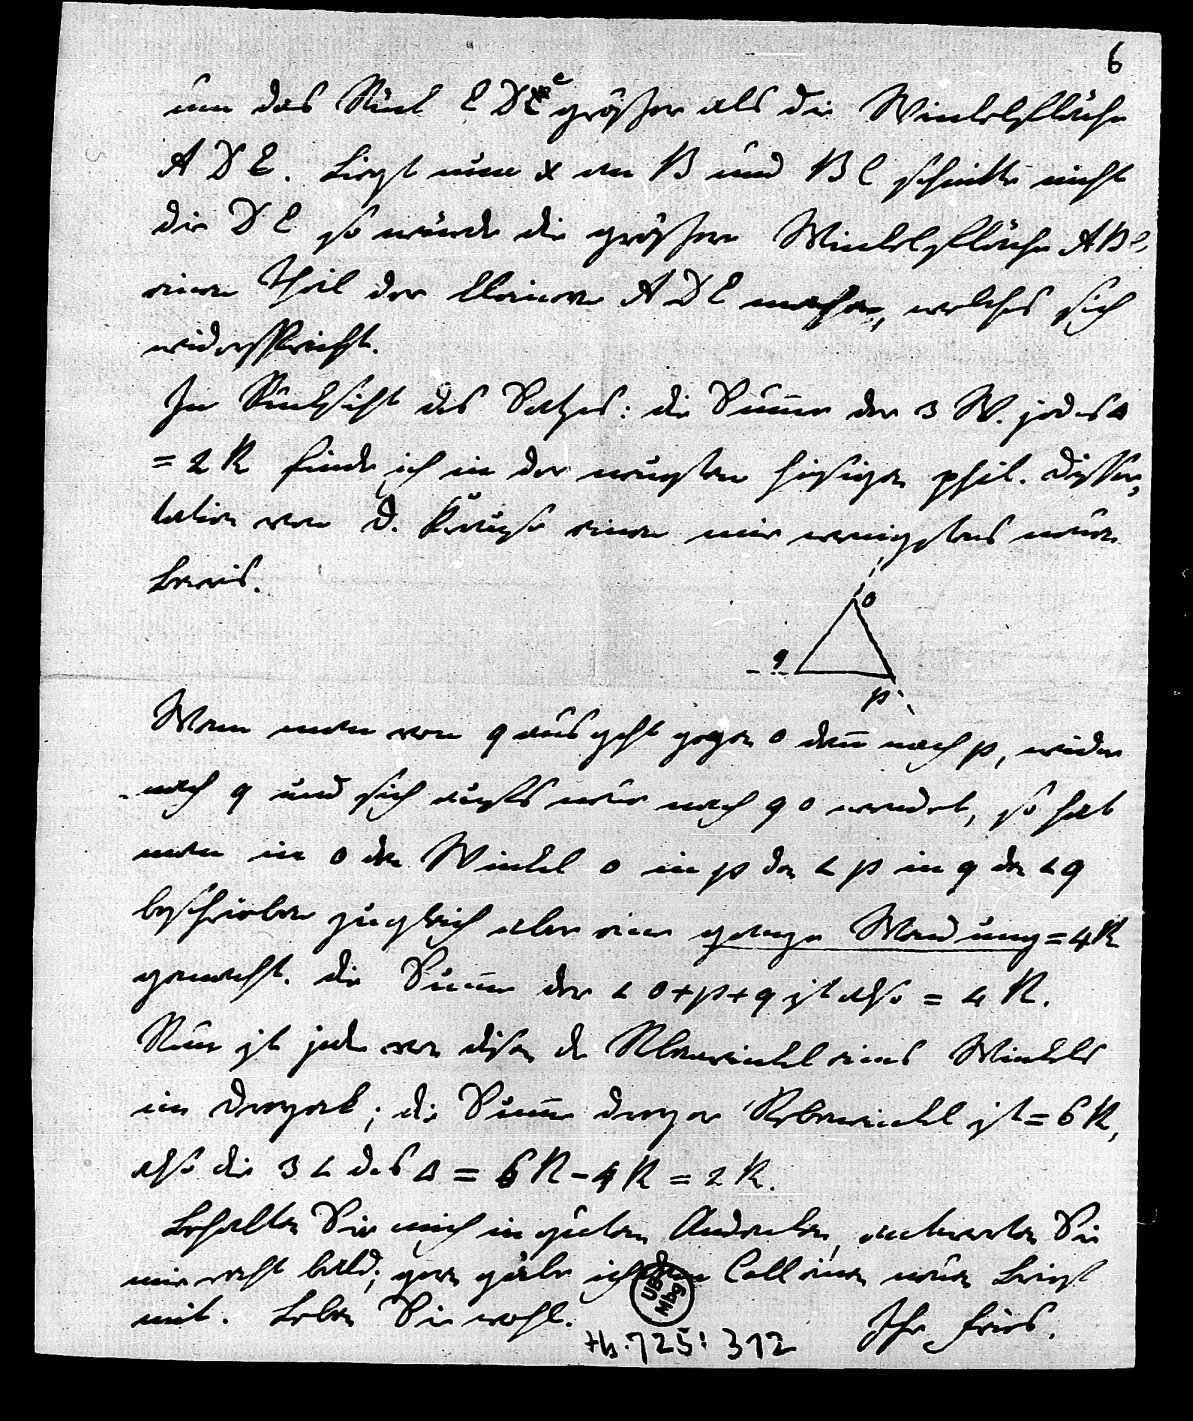 6
um das Stück C D E e größer als die Winkelfläche
A D E. Liegt nun x in B und B C schnitte nicht
die D E so würde die größere Winkelfläche A B C
einen Theil der kleinern A D E machen, welches sich
widerspricht.
In Rücksicht des Satzes: die Summe der 3 W. jedes Δ
= 2 R finde ich in der neusten hiesigen phil. Disser-
tation von D. Krause einen mir wenigstens neuen
Beweis.
o
q
p
Wenn man von q ausgeht gegen o dann nach p, wieder
nach q und sich aufs neue nach q o wendet, so hat
man in o den Winkel o in p den ∠ p in q den ∠ q
beschrieben zugleich aber eine ganze Wendung = 4 R
gemacht. Die Summe der ∠ o + p + q ist also = 4 R.
Nun ist jeder von diesen der Nebenwinkel eines Winkels
im Dreyeck; die Summe dreyer Nebenwinkel ist = 6 R,
also die 3 ∠ des Δ = 6 R − 4 R = 2 R.
Behalten Sie mich in gutem Andenken, antworten Sie
mir recht bald; gern gäbe ich Coll einen neuen Brief
mit. Leben Sie wohl.
Ihr Fries.
UB Mbg
725: 312